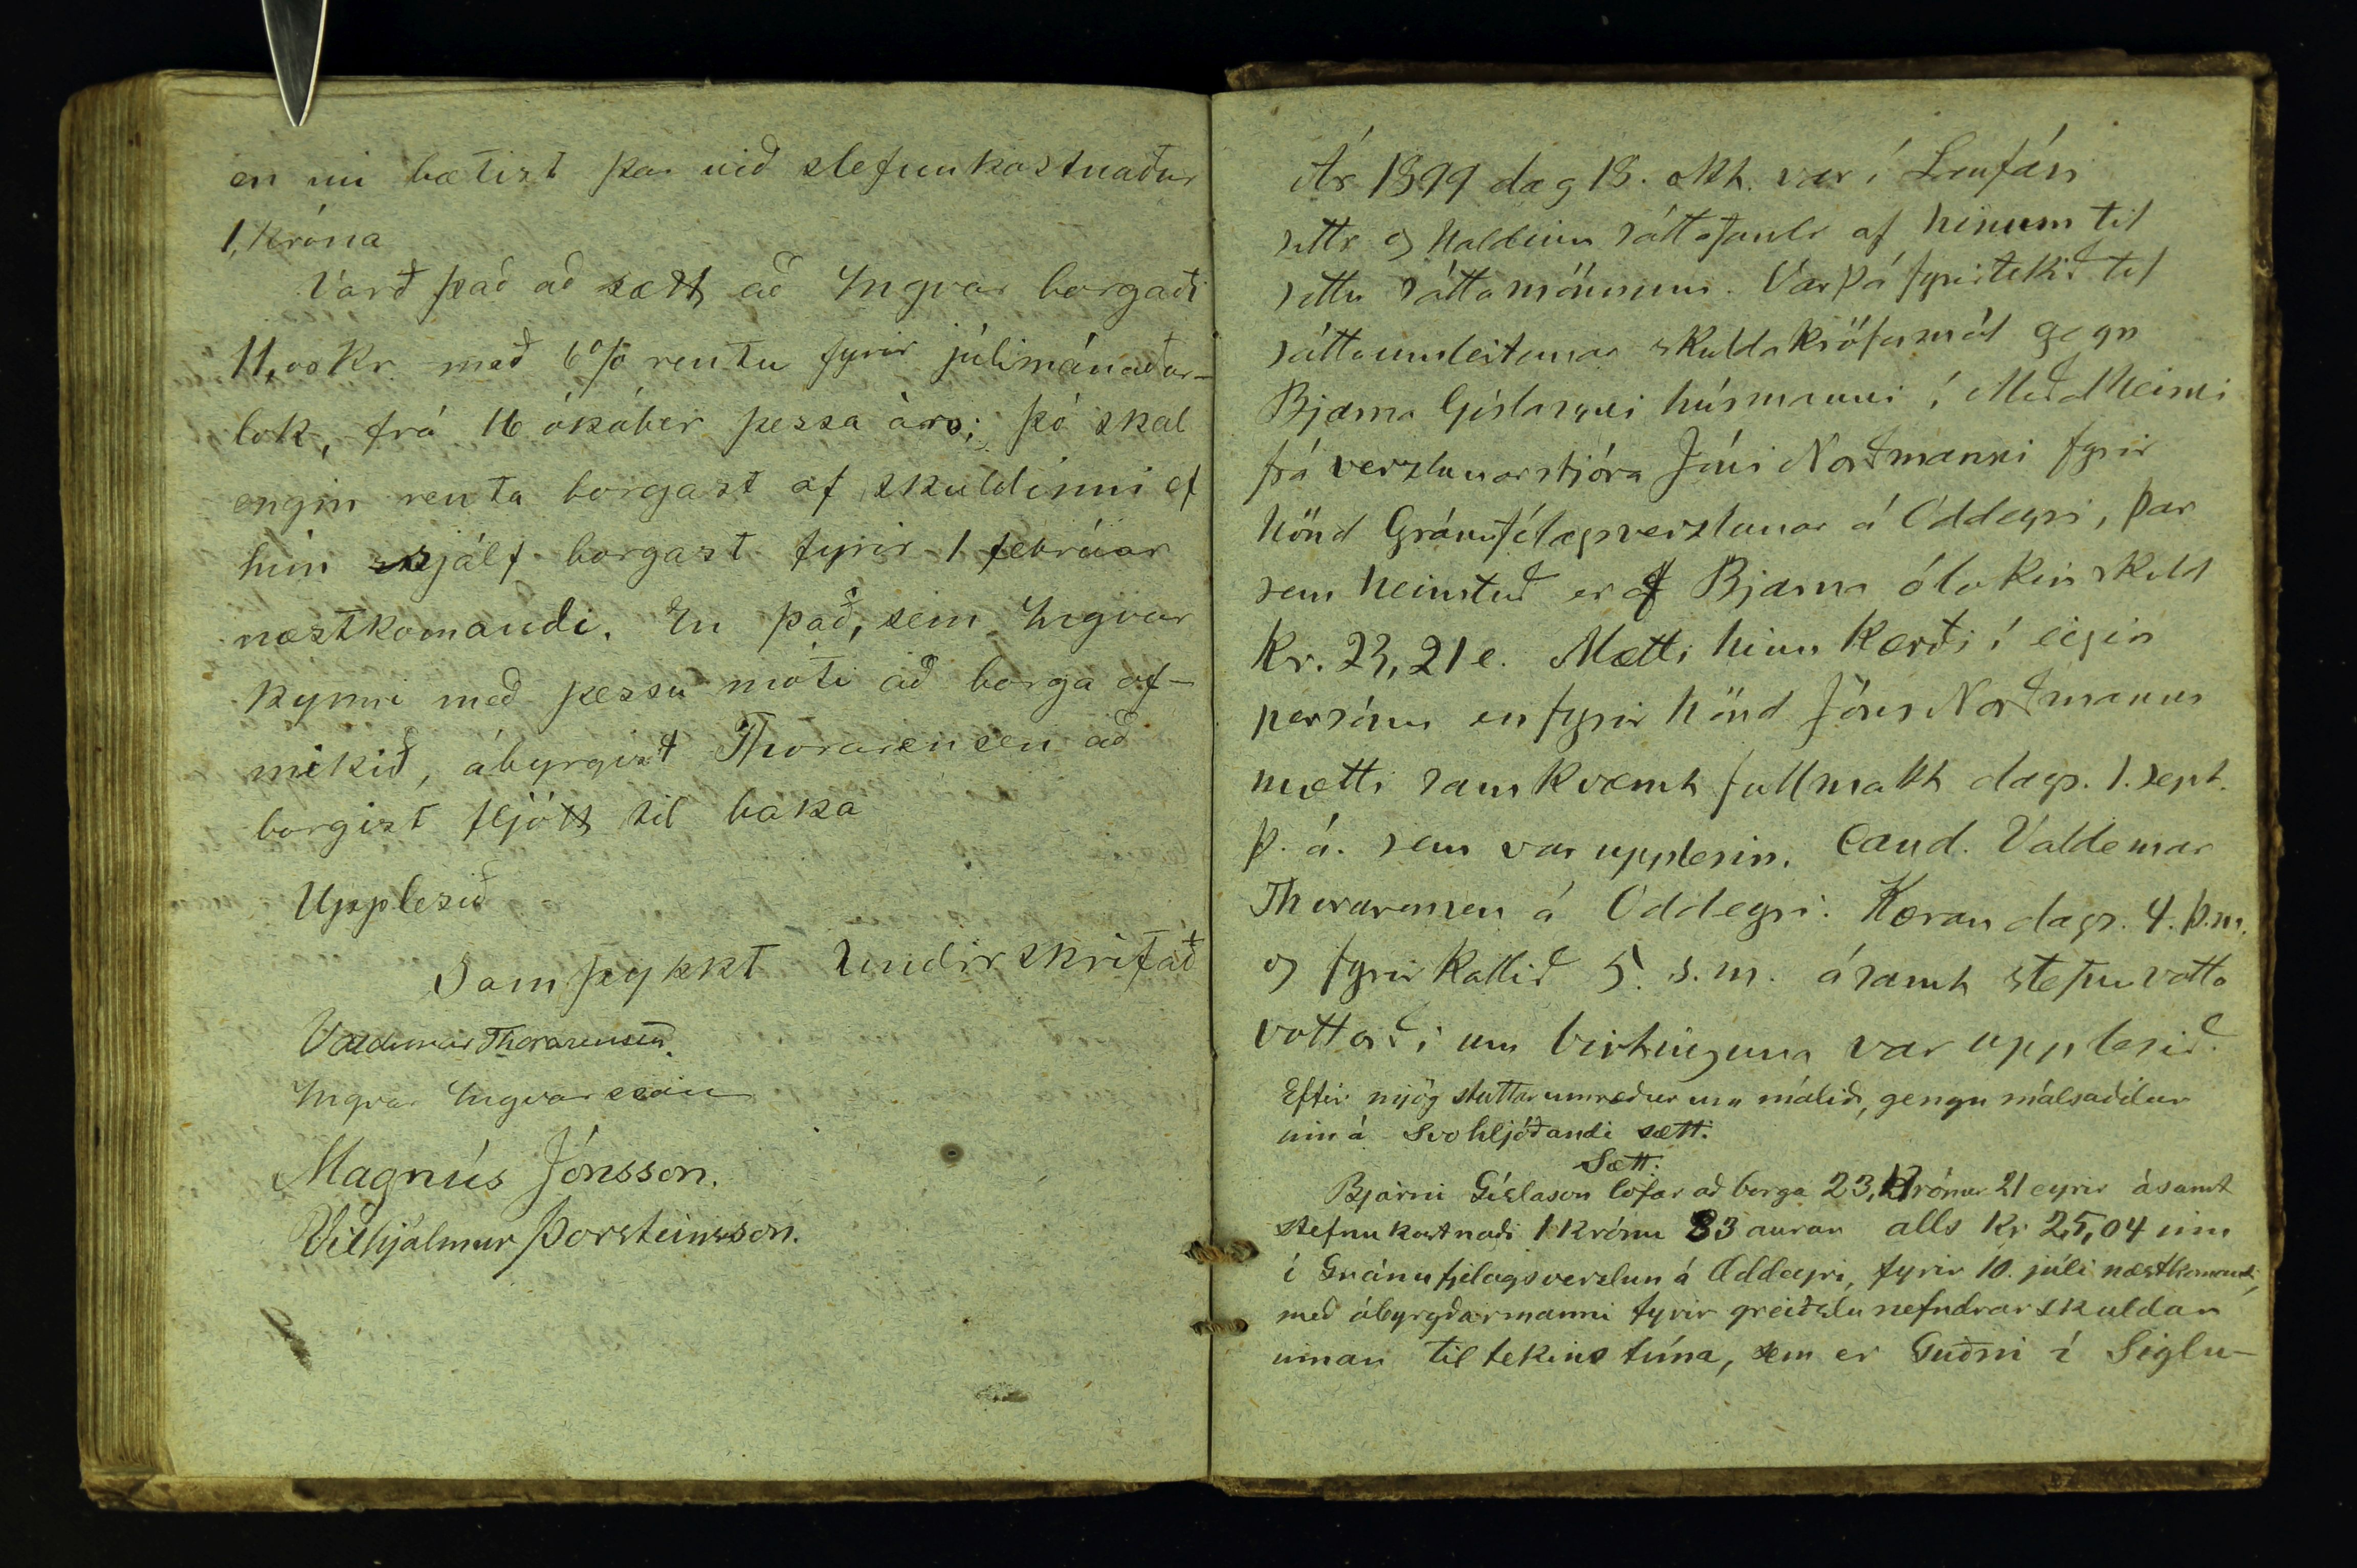 en nú bætist þar við stefnukostnaður
1, króna
Varð það að sætt að Ingvar borgaði
11,00 Kr. með 6% rentu fyrir júlímánaðar-
lok, frá 16 óktóber þessa árs; þó skal
engin renta borgast af skuldinni ef
hún sjálf borgast fyrir 1 febrúar
næstkomandi. En það, sem Ingvar
kynni með þessu móti að borga of-
mikið, ábyrgist Thorarensen að
borgist fljótt til baka
Upplesið
Samþykkt Undirskrifað
Valdemar Thorarensen.
Ingvar Ingvarsson
Magnús Jónsson.
Vilhjálmur Þorsteinsson.
Ár 1899 dag 18. okt. var í Laufási
settr og haldinn sáttafundr af hinum til
settu sáttamönnum. Var þá fyrirtekið til
sáttaumleitunar skuldakröfumál gegn
Bjarna Gíslasyni húsmanni í Meðalheimi
frá verzlunarstjóra Jóni Norðmanni fyrir
hönd Gránufélagsverzlunar á Oddeyri, þar
sem heimtuð er af Bjarna ólokin skuld
Kr. 23,21 e. Mætti hinn kærði í eigin
persónu en fyrir hönd Jóns Norðmanns
mætti samkvæmt fullmakt dags. 1. sept.
þ. á. sem var upplesin. Cand. Valdemar
Thorarensen á Oddeyri. Kæran dags. 4. þ.m.
og fyrirkallið 5. s.m. ásamt stefnuvotta
vottorði um birtinguna var upplesið.
Eftir mjög stuttar umræður um málið, gengu málsaðilar
inn á svohljóðandi sætt.
Sætt:
Bjarni Gíslason lofar að borga 23, Krónur 21 eyrir ásamt
stefnukostnaði 1 Krónu 83 aurar alls Kr 25,04 inn
í Gránufjelagsverzlun á Oddeyri, fyrir 10. júlí næstkomandi,
með ábyrgðarmanni fyrir greiðslu nefndrar skuldar
innan tiltekins tíma, sem er Guðni í Siglu-